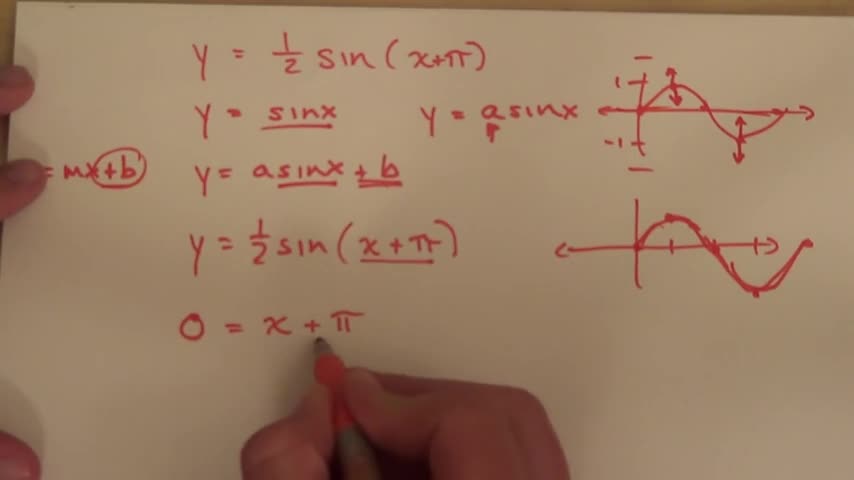 y = 1/2 sin(x+π)
y = sinx y = asinx
= mx+b y = asinx + b
y = 1/2 sin(x + π)
0 = x + π
1
-1